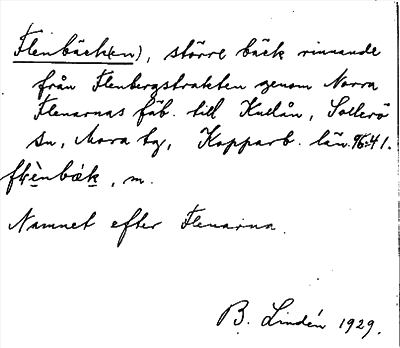 Flenbäck(en), större bäck rinnande
från Flenbergstrakten genom Norra
Flenarnas fäb. till Kullån, Sollerö
sn, Mora tg, Kopparb. län. 96:41.
flènbä̀k, m.
Namnet efter Flenarna.
B. Lindén 1929.